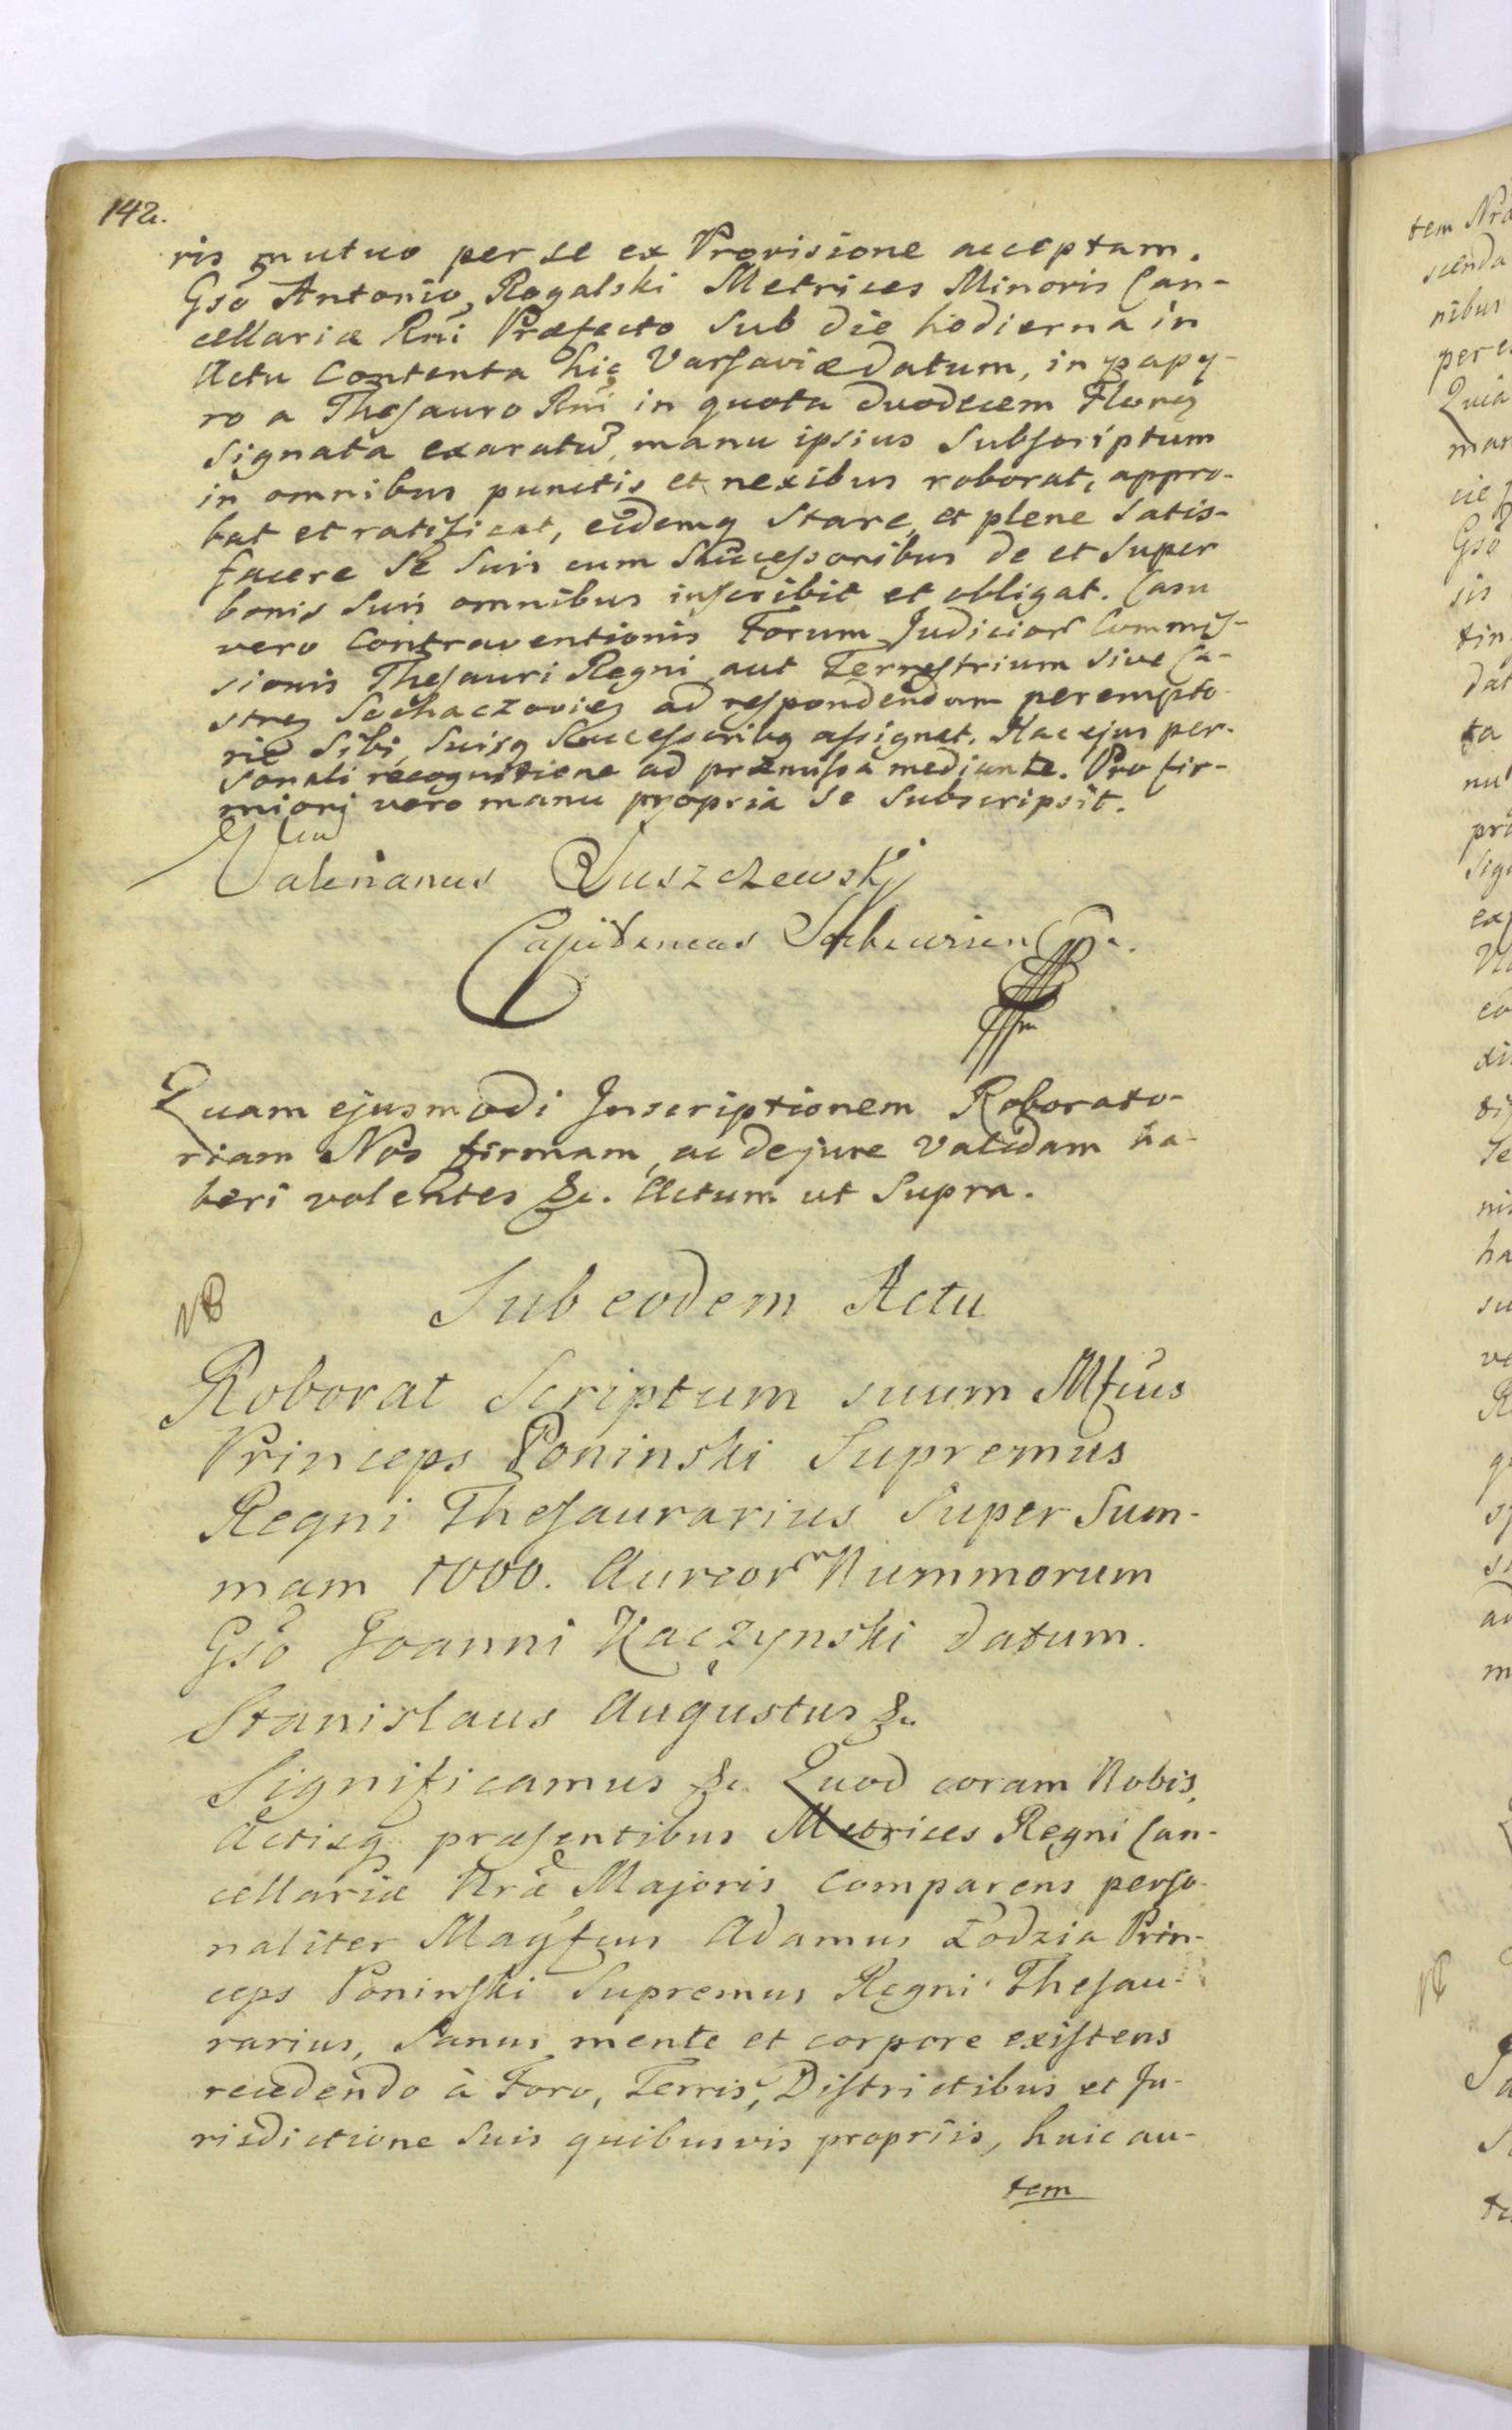 142.
ris mutuo per se ex Provisione acceptam.
Gsõ Antonio Rogalski Metrices Minoris Can-
cellariæ Rñi Præfecto Sub die hodierna in
Actu Contenta hic Varsaviæ datum, in papy-
ro a Thesauro Rñi in quota duodecem Floreq
Signata exaratũ, manu ipsius Subscriptum
in omnibus punctis et nexibus roborat, appro-
bat et ratificat, eidemq Stare, et plene Satis-
facere Se Suis cum Successoribus de et Super
bonis Suis omnibus inscribit et obligat. Casu
vero Contraventionis Forum Judicior Commis-
sionis Thesauri Regni aut Terrestrium Sive Ca-
streq Sochaczovieq ad respondendum perempto-
rie Sibi, Suisq Successoribq assignat. Hac ejus per-
sonali recognitione ad præmissa mediante. Pro fir-
miori vero manu propria Se Subscripsit.
Valerianus Łuszczewskj
Capitaneus
Quam ejusmodi Inscriptionem Roborato-
riam Nos firmam, ac de jure Validam ha-
beri volentes &c. Actum ut Supra.
NB
Sub eodem Actu
Roborat Scriptum suum Mfcus
Princeps Poninski Supremus
Regni Thesaurarius Super Sum-
mam 1000. Aureor Nummorum
Gsõ Joanni Kaczynski datum.
Stanislaus Augustus &c.
Significamus &c. Quod coram Nobis,
Actisq præsentibus Metrices Regni Can-
cellariæ Nræ Majoris Comparens perso-
naliter Magfcus Adamus Łodzia Prin-
ceps Poninski Supremus Regni Thesau-
rarius, Sanus mente et corpore existens
recedendo à Foro, Terris, Districtibus et Ju-
risdictione Suis quibusvis propriis, huic au-
tem